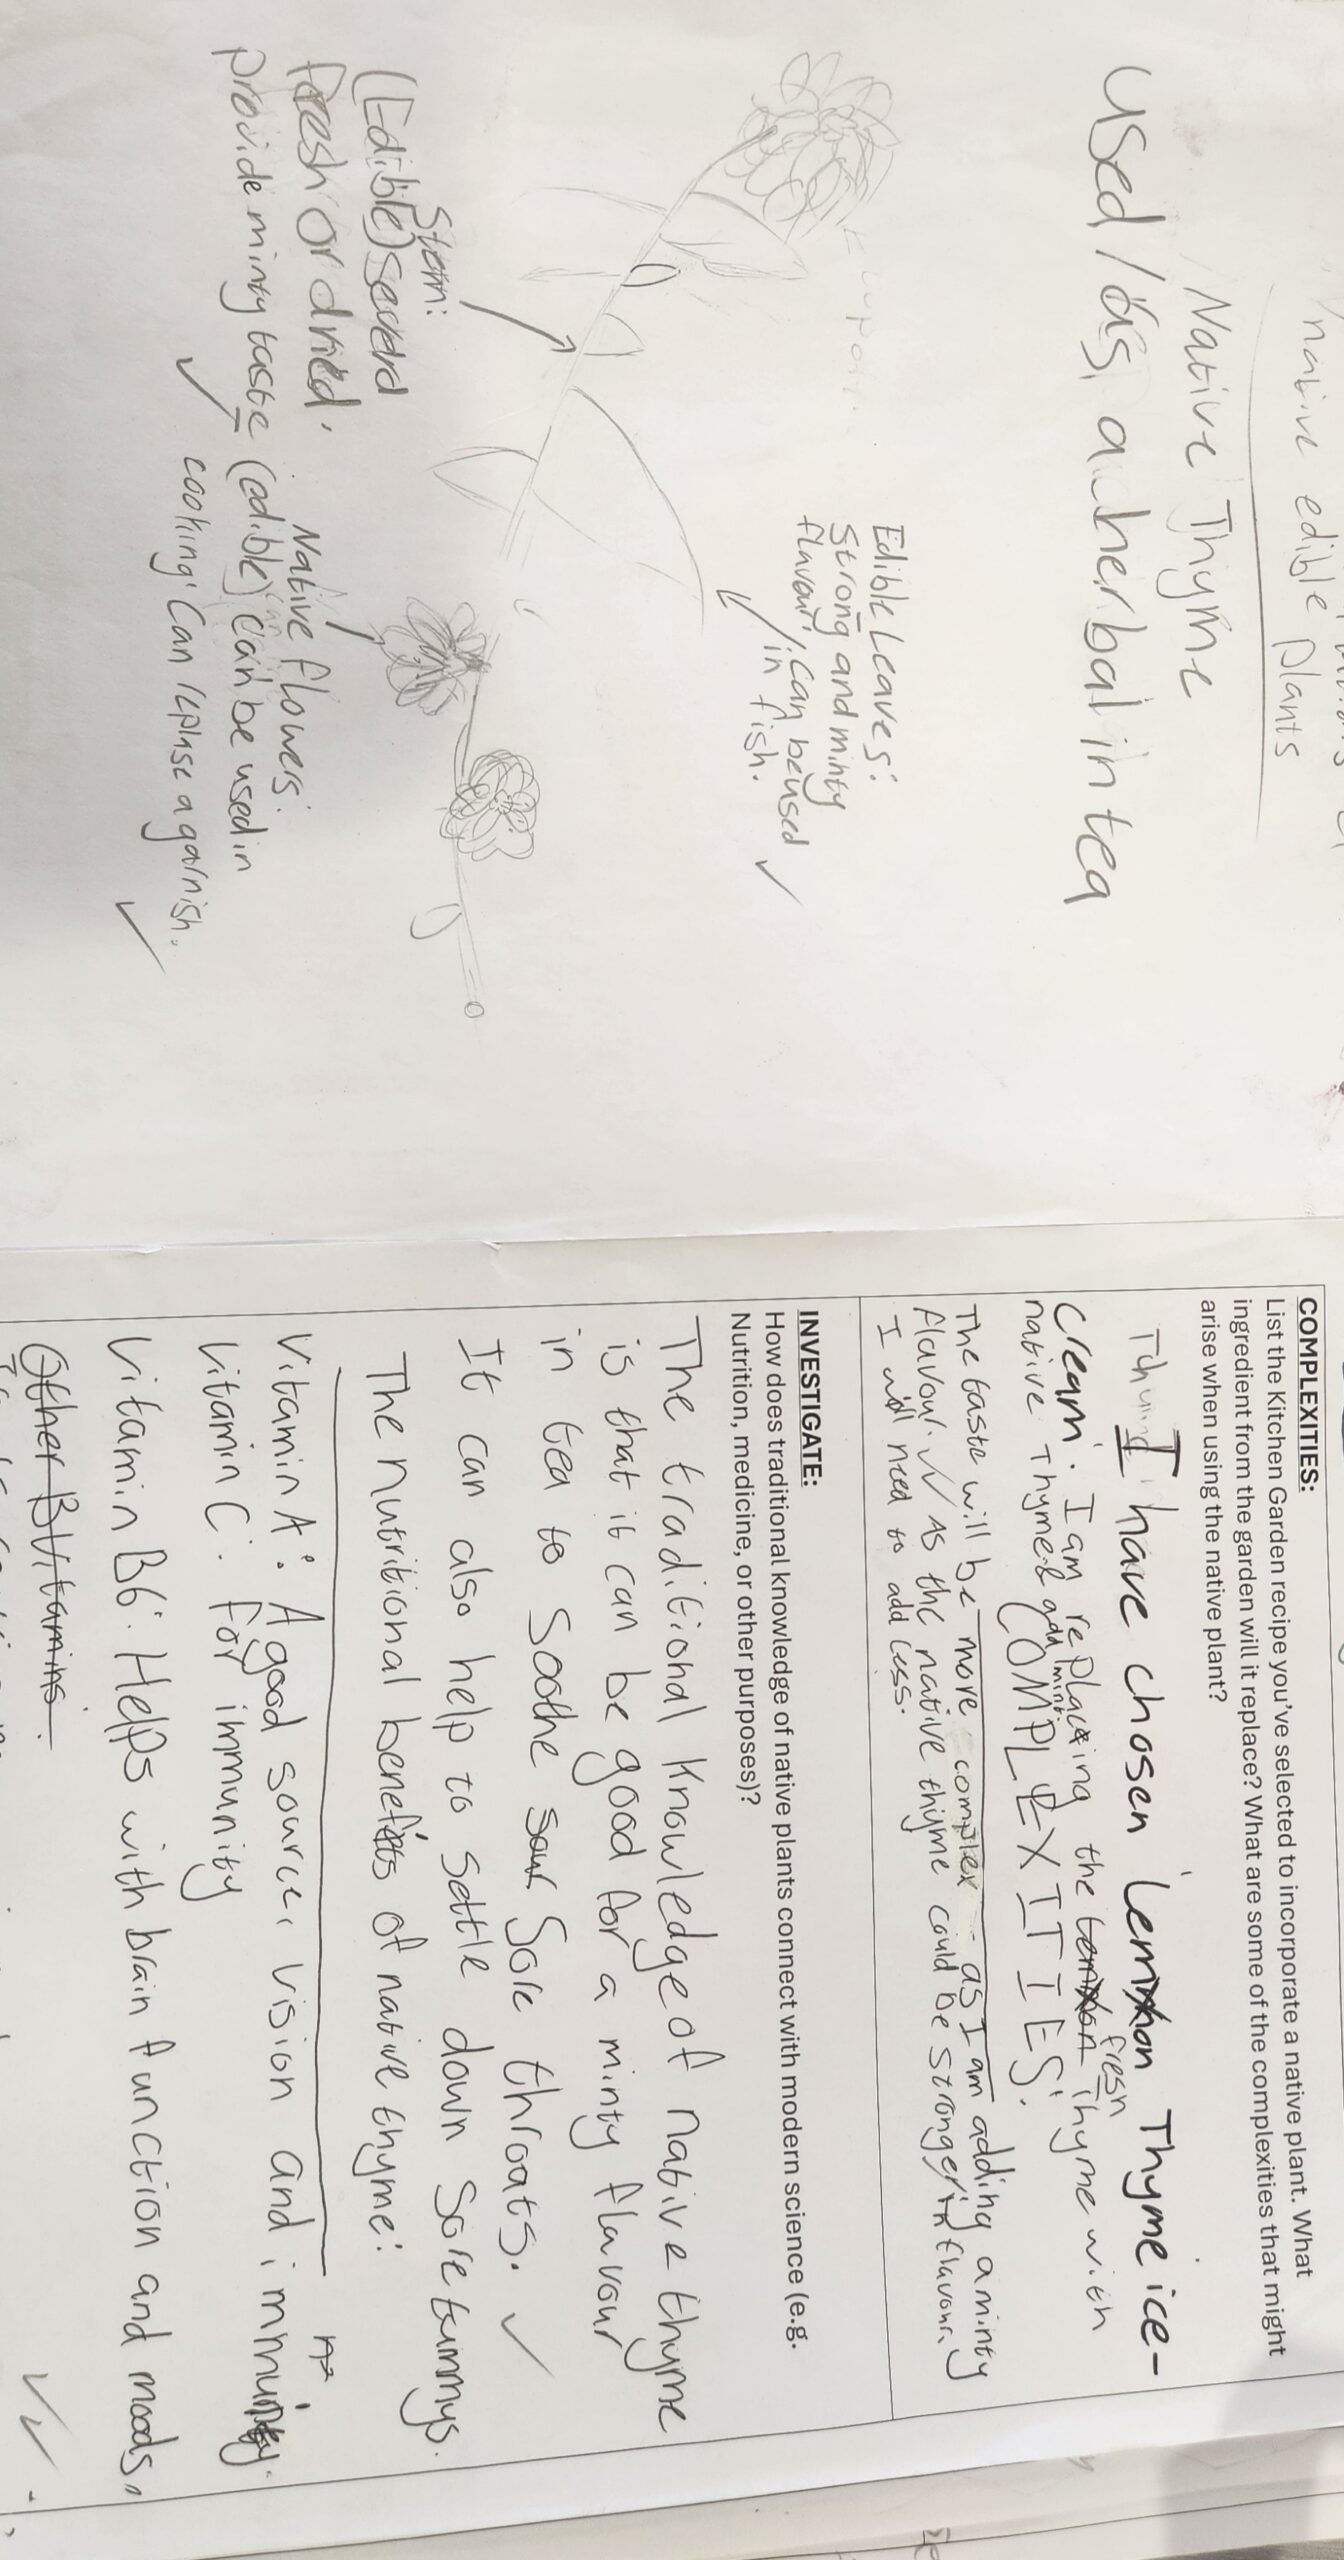 native edible plants
Native Thyme
used/as a herbal in tea
Edible Leaves:
Strong and minty
flavour. can be used
in fish.
Stem:
(Edible)
fresh or dried.
provide minty taste
Native flowers:
(edible) can be used in
cooking. Can a garnish.
COMPLEXITIES:
List the Kitchen Garden recipe you've selected to incorporate a native plant. What
ingredient from the garden will it replace? What are some of the complexities that might
arise when using the native plant?
I have chosen Lemon Thyme ice-
cream. I am replacing the fresh Thyme with
native Thyme & add mint.
COMPLEXITIES:
The taste will be more complex - as I am adding a minty
flavour. As the native thyme could be stronger in flavour.
I will need to add less.
INVESTIGATE:
How does traditional knowledge of native plants connect with modern science (e.g.
Nutrition, medicine, or other purposes)?
The traditional knowledge of native thyme
is that it can be good for a minty flavour
in tea to Soothe sour Sore throats.
It can also help to settle down Sore tummys.
The nutritional benefits of native thyme:
Vitamin A: A good source, vision and immunity.
Vitamin C: For immunity
Vitamin B6: Helps with brain function and moods,
Other B Vitamins.